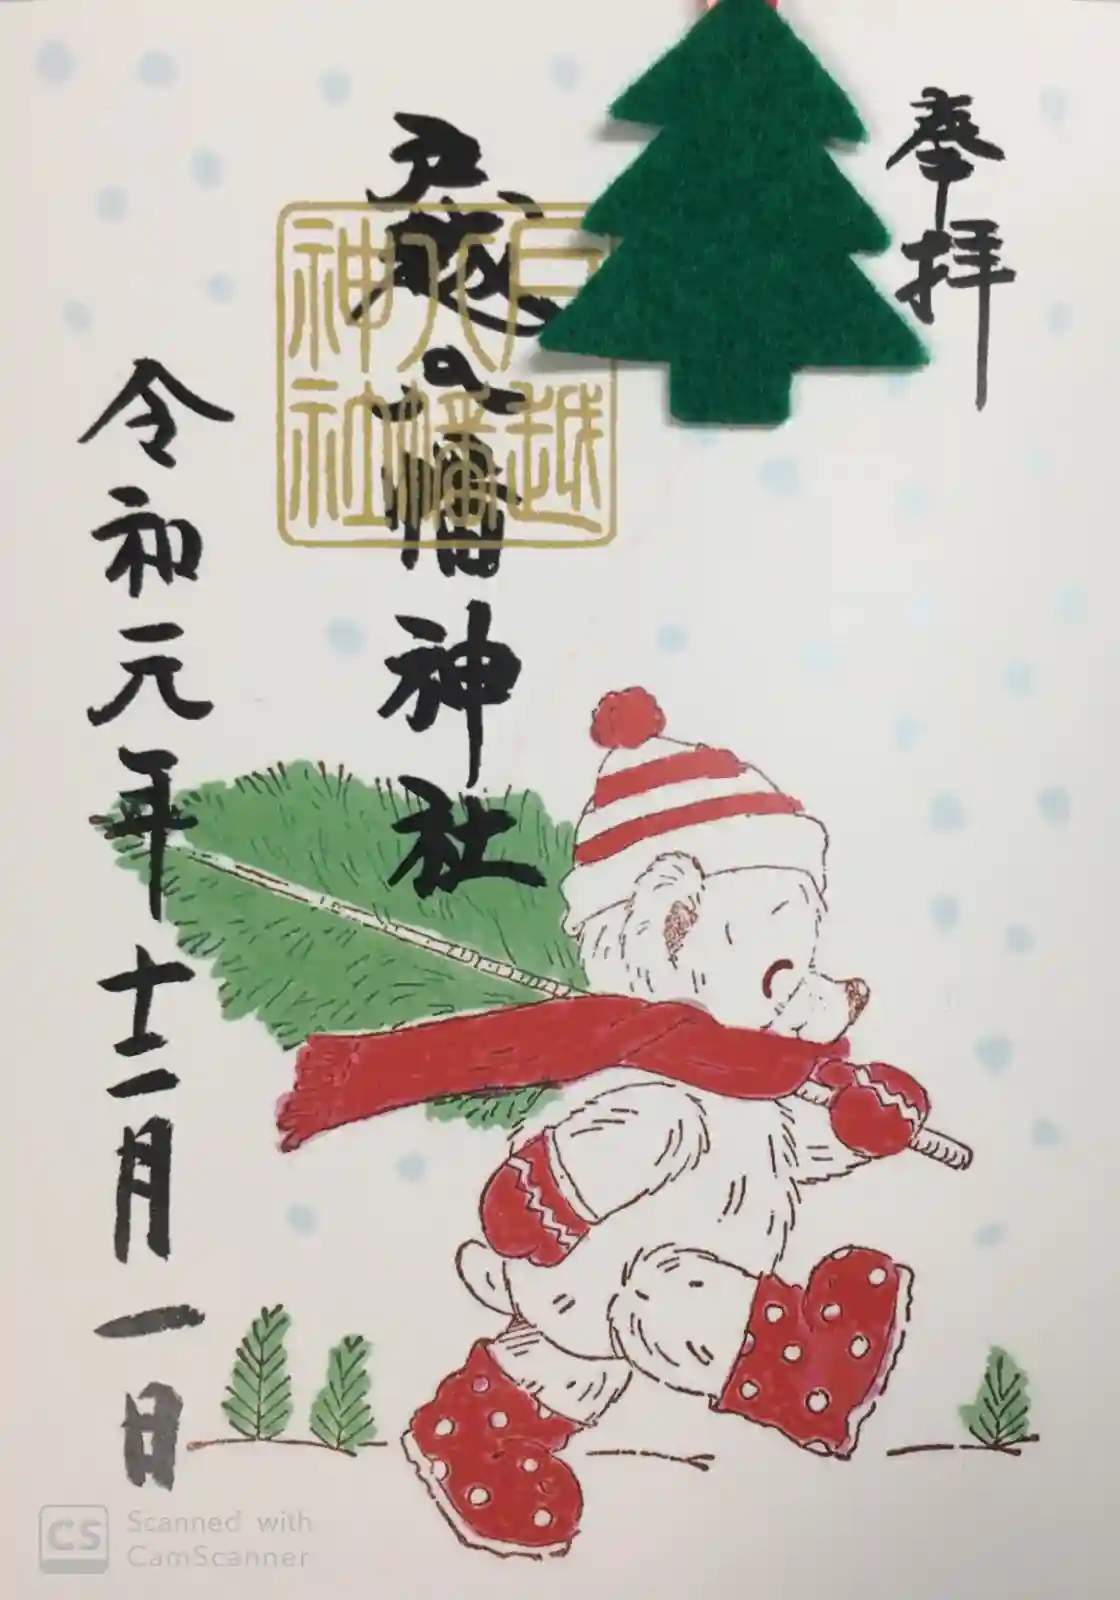 奉拝
戸越八幡神社
戸越
八幡
神社
令和元年十二月一日
CS Scanned with
CamScanner